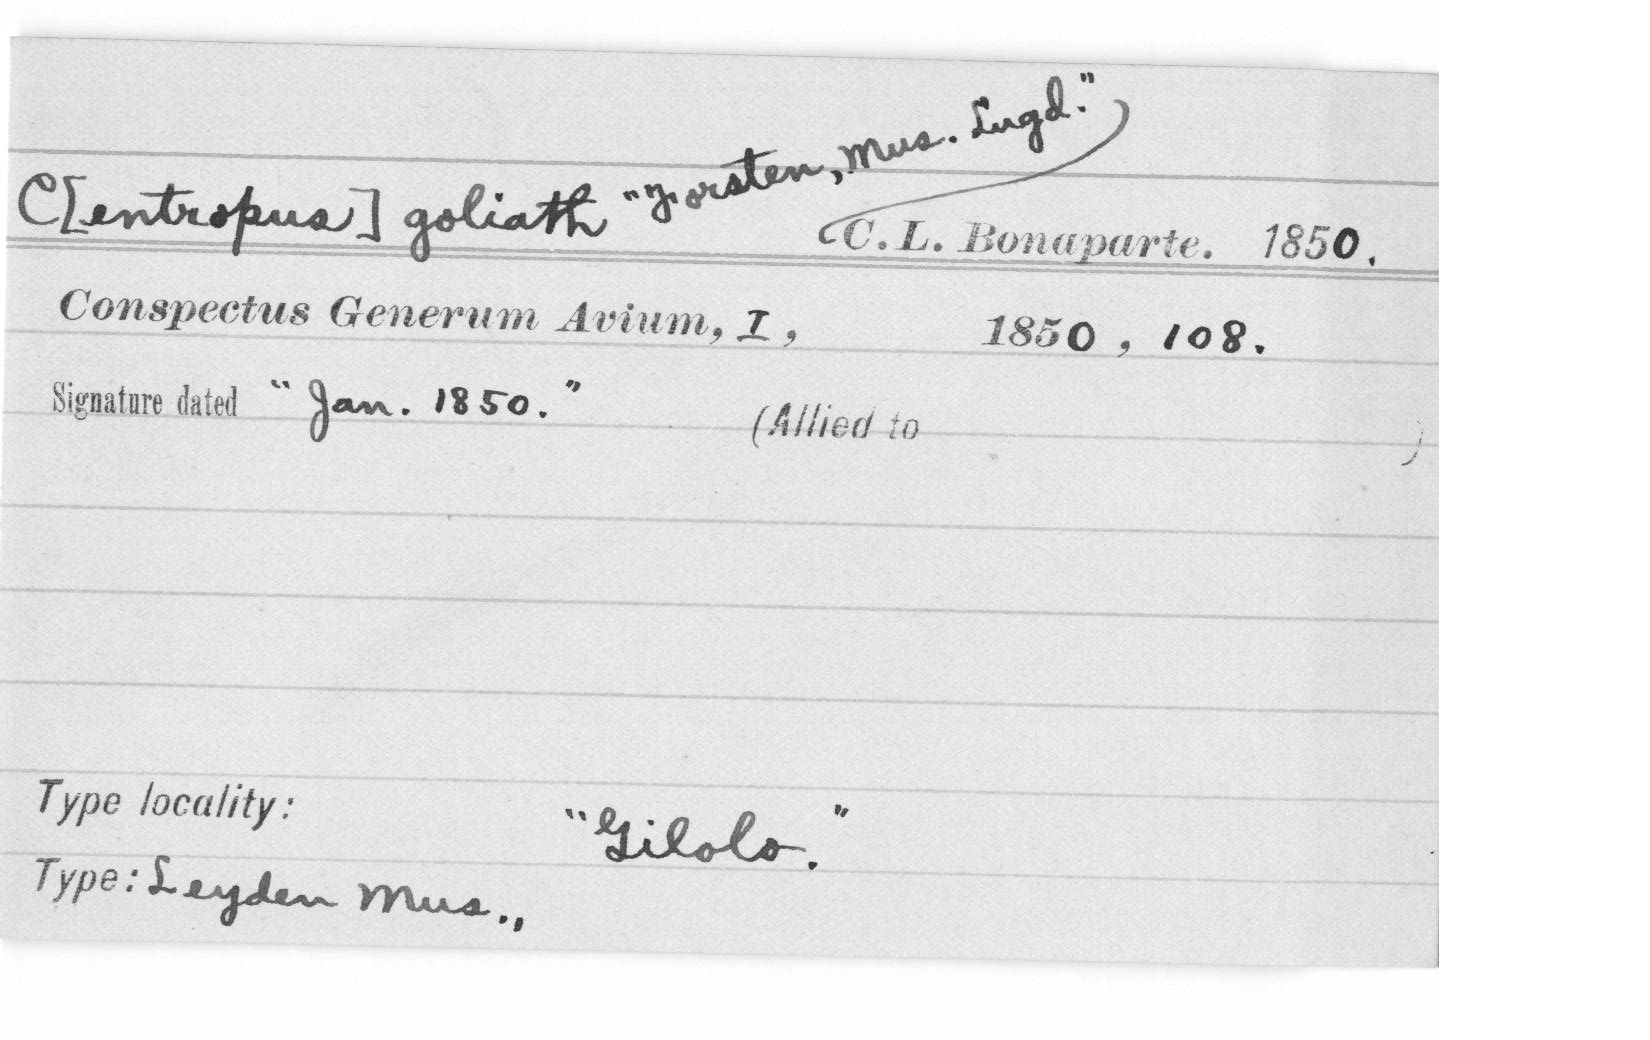 C[entropus] goliath "Forsten, Mus. Lugd."
C. L. Bonaparte. 1850.
Conspectus Generum Avium, I, 1850, 108.
Signature dated "Jan. 1850." (Allied to )
Type locality: "Gilolo."
Type: Leyden Mus.,